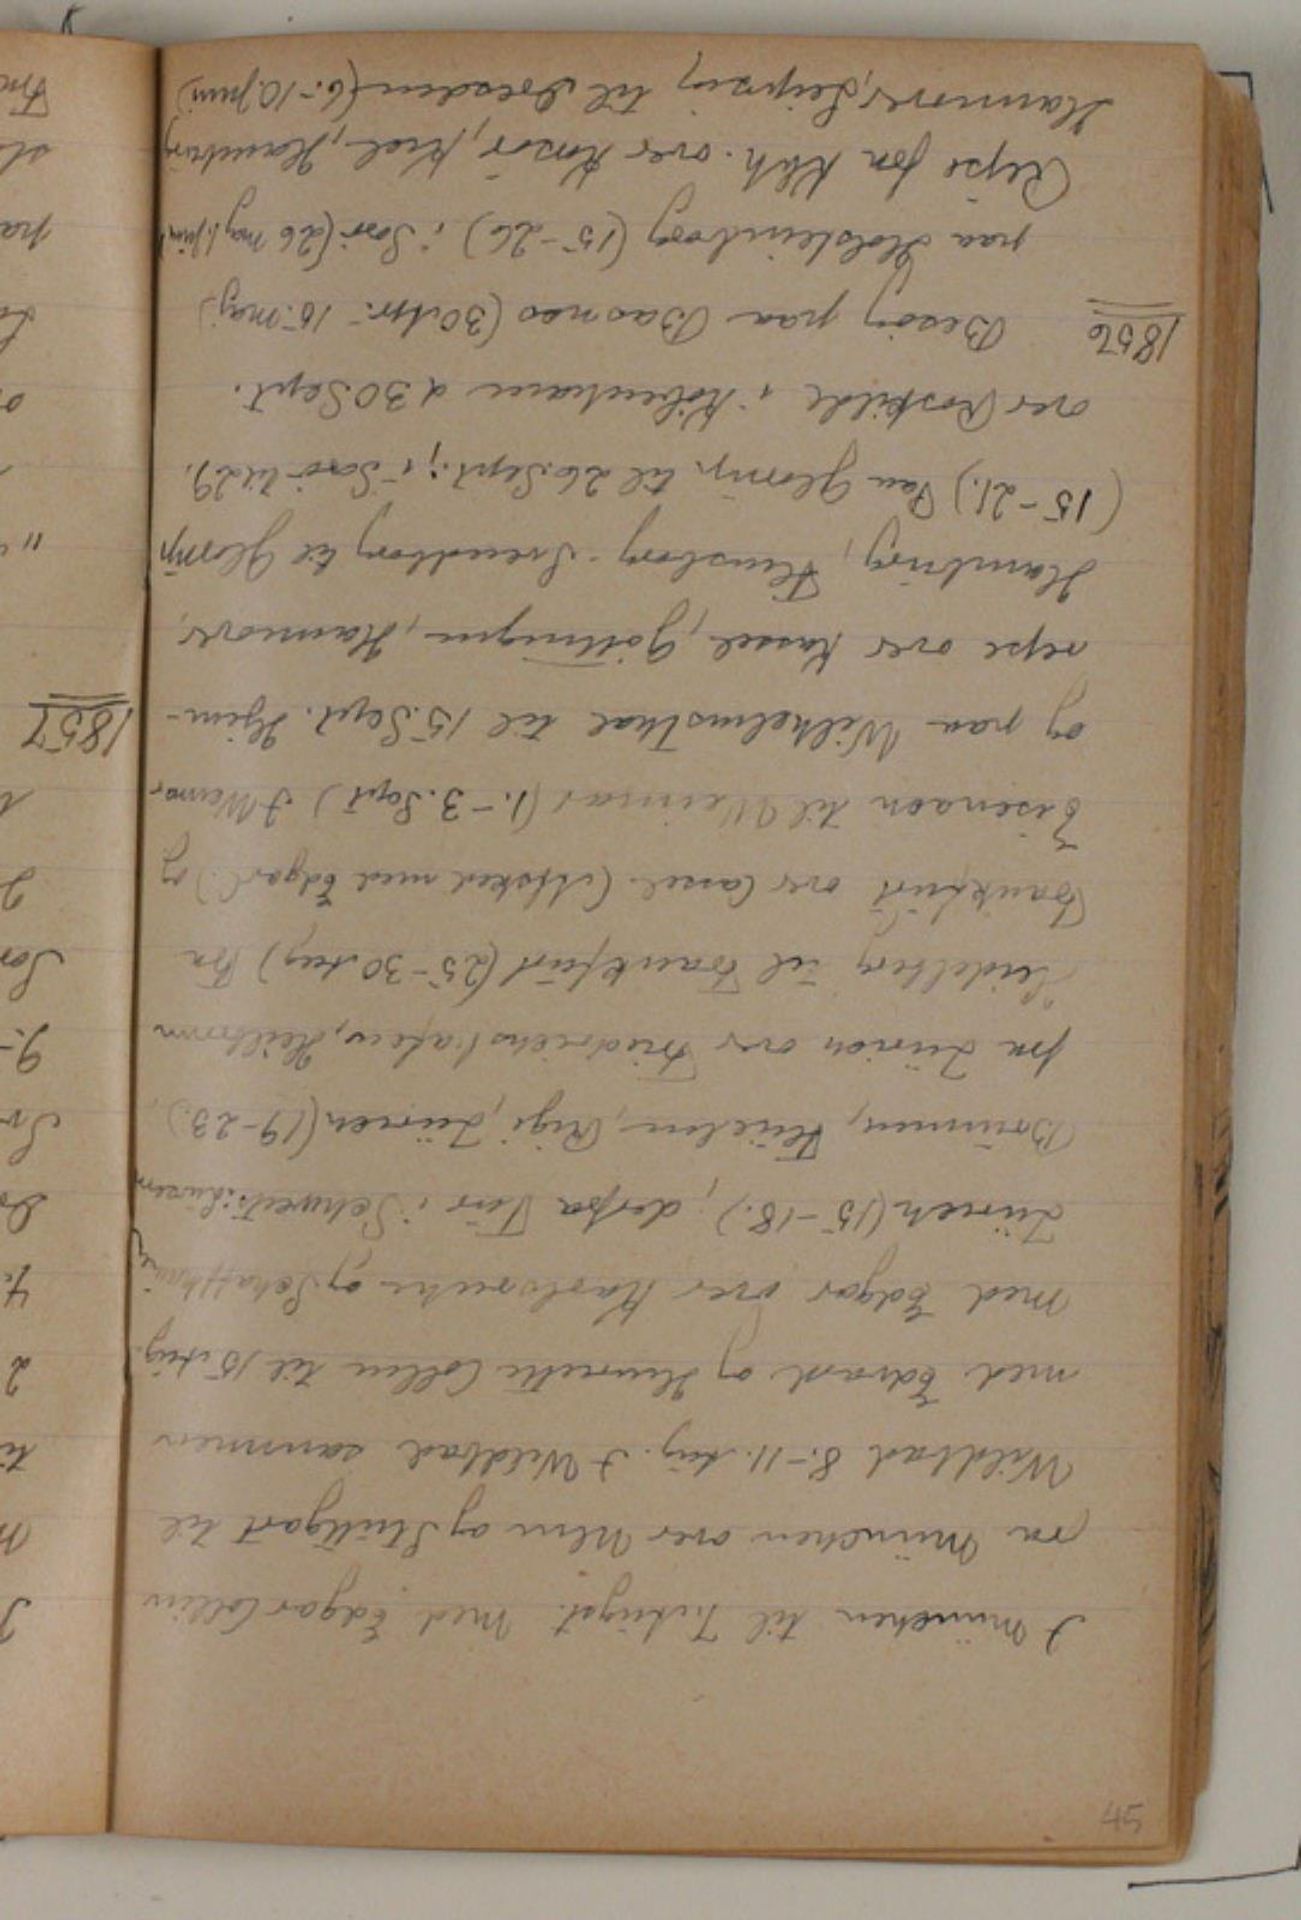 I München til 7. August. Med Edgar Collin
fra München over Ulm og Stuttgart til
Wildbad 8.-11. Aug. I Wildbad sammen
med Edvard og Henriette Collin til 15 Aug.
Med Edgar over Karlsruhe og Schaffhausen
Zürich (15-18.), derfra Tour i Schweitz: Luzern
Brunnen, Flüelen, Rigi, Zürich (19-23.),
fra Zürich over Friedrichshafen, Heilbronn
Heidelberg til Frankfurt (25-30 Aug) Fra
Frankfurt over Cassel (Afsked med Edgar) og
Eisenach til Weimar (1.-3. Sept.) I Weimar
og paa Wilhelmsthal til 15. Sept. Hjem-
rejse over Kassel, Göttingen, Hannover,
Hamburg, Flensborg - Svendborg til Glorup
(15-21.) Paa Glorup til 26. Sept.; i Sorö til 29.
over Roskilde i Köbenhavn d 30 Sept.
1856 Besög paa Basnæs (30 Apr. - 15. maj)
paa Holsteinborg (15-26) i Sorö (26 maj
Rejse fra Kbh. over Korsör, Kiel, Hamburg
Hannover, Leipzig til Dresden (6.-10. juni)
45
1857